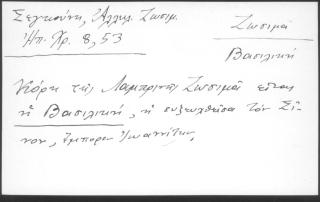 Σεγκούνη, Ἀλληλ. Ζωσιμ.
Ἠπ. Χρ. 8, 53
Ζωσιμᾶ
Βασιλική
Κόρη τῆς Λαμπρινῆς Ζωσιμᾶ εἶναι
ἡ Βασιλική, ἡ συζευχθεῖσα τὸν Σῖ-
νον, ἔμπορον Ἰωαννίτην.